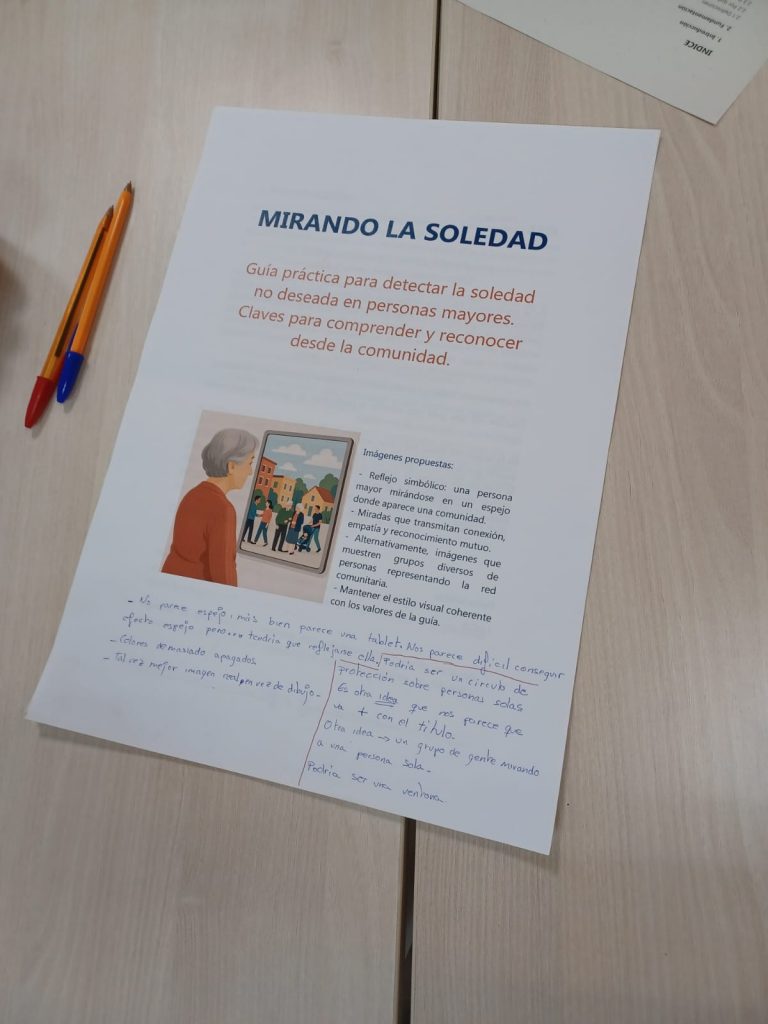 INDICE
1. Introducción
2. Fundamentación
MIRANDO LA SOLEDAD
Guía práctica para detectar la soledad
no deseada en personas mayores.
Claves para comprender y reconocer
desde la comunidad.
Imágenes propuestas:
- Reflejo simbólico: una persona
mayor mirándose en un espejo
donde aparece una comunidad.
- Miradas que transmitan conexión,
empatía y reconocimiento mutuo.
- Alternativamente, imágenes que
muestren grupos diversos de
personas representando la red
comunitaria.
- Mantener el estilo visual coherente
con los valores de la guía.
- No parece espejo, más bien parece una tablet. Nos parece dificil conseguir
efecto espejo pero... tendria que reflejarse ella.
- Colores demasiado apagados
- Tal vez mejor imagen real en vez de dibujo.
Podria ser un circulo de
protección sobre personas solas
Es otra idea que nos parece que
va + con el título.
Otra idea → un grupo de gente mirando
a una persona sola.
Podria ser una ventana